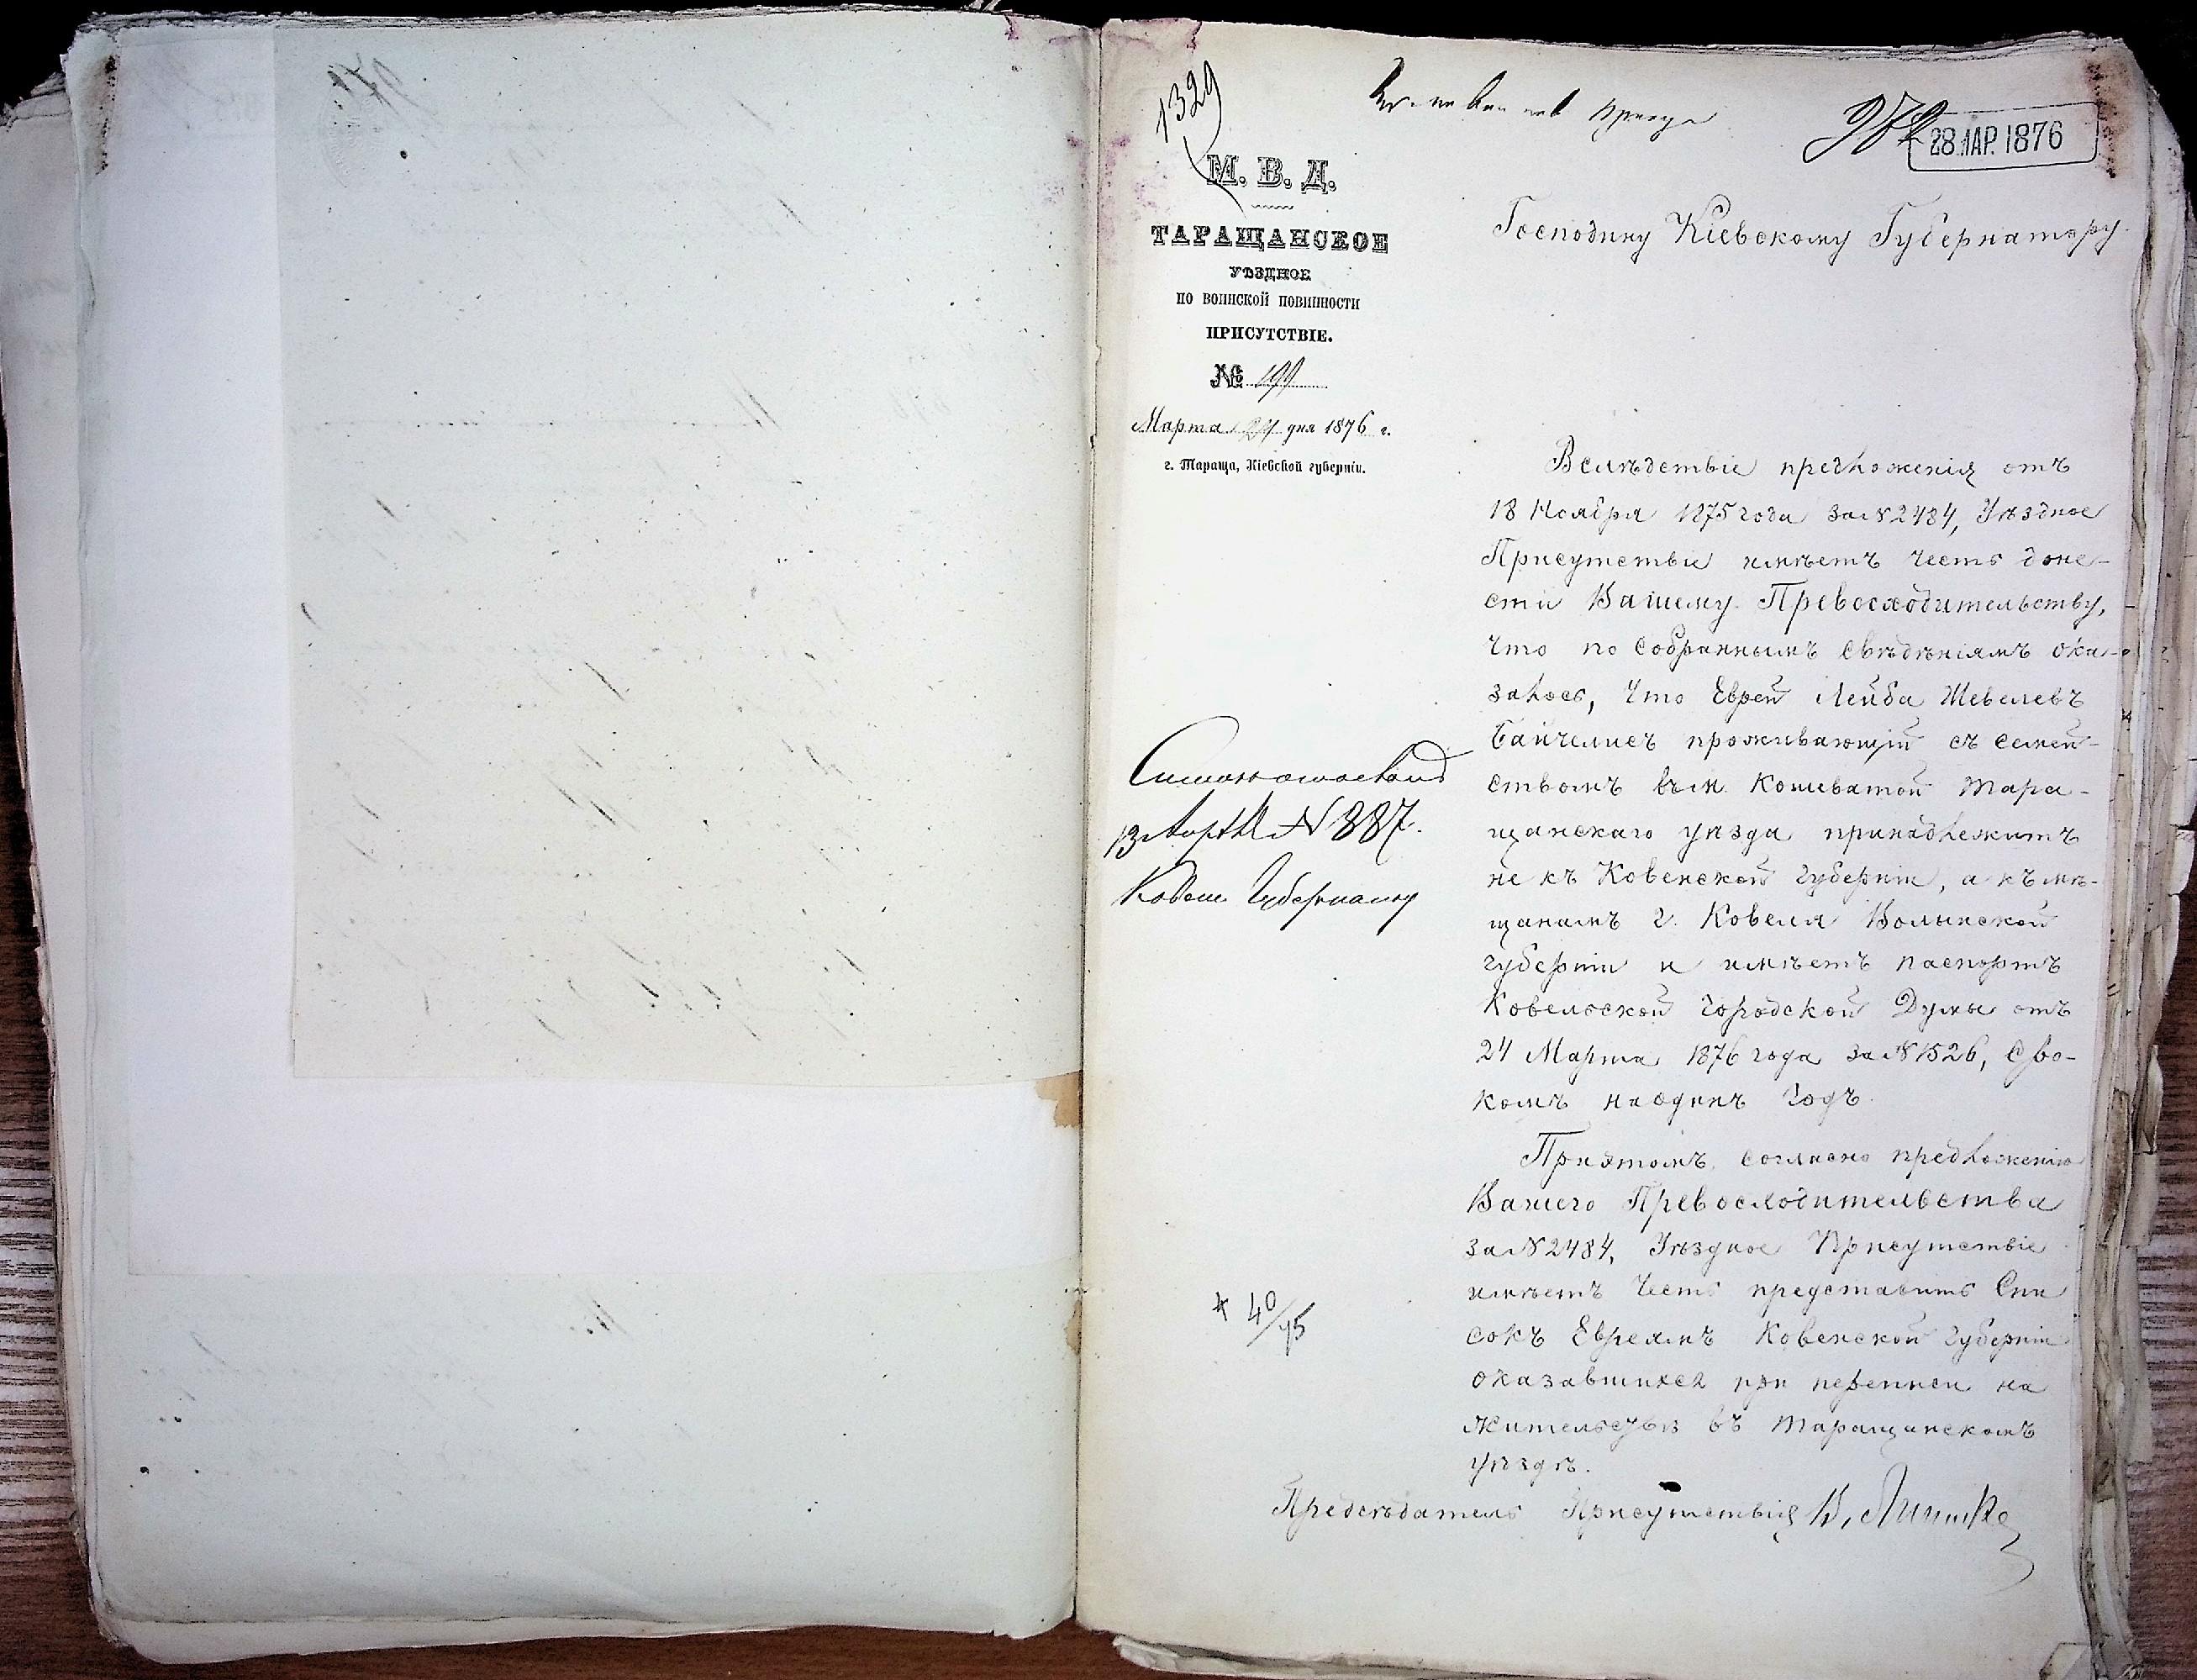 1329
28 МАР. 1876
М. В. Д.
ТАРАЩАНСКОЕ
УѢЗДНОЕ
ПО ВОИНСКОЙ ПОВИННОСТИ
ПРИСУТСТВІЕ.
№ 199
Марта 27 дня 1876 г.
г. Тараща, Кіевской губерніи.
Господину Кіевскому Губернатору
Вслѣдствіе предложенія отъ
18 Ноября 1875 года за № 2484, Уѣздное
Присутствіе имѣетъ честь доне-
сти Вашему Превосходительству,
что по собраннымъ свѣдѣніямъ ока-
залось, что Еврей Лейба Шевелевъ
Байчелисъ проживающій съ семей-
ствомъ въ м. Кошеватой Тара-
щанскаго уѣзда принадлежитъ
не къ Ковенской губерніи, а къ мѣ-
щанамъ г. Ковеля Волынской
губерніи и имѣетъ паспортъ
Ковельской городской Думы отъ
24 Марта 1876 года за № 1526, сро-
комъ на одинъ годъ.
Приэтомъ, согласно предложенію
Вашего Превосходительства
за № 2484, Уѣздное Присутствіе
имѣетъ честь представить Спи
сокъ Евреямъ Ковенской губерніи
оказавшихся при переписи на
жительствѣ въ Таращанскомъ
уѣздѣ.
Предсѣдатель Присутствія В.
13 Апрѣля № 887.
Ковен Губернатору
40/75